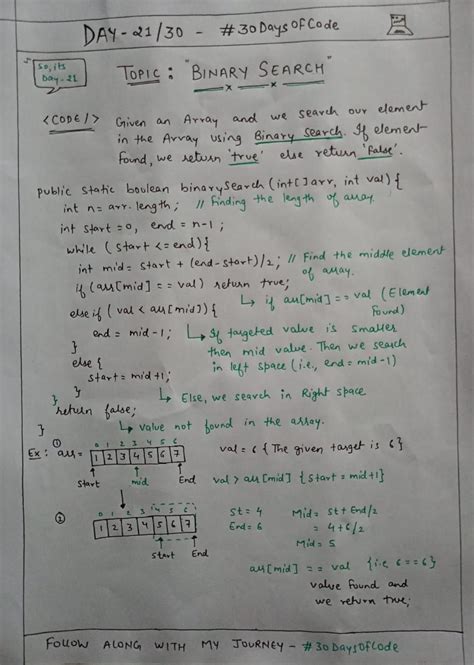 DAY-21/30 - #30DaysOfCode
So, its
Day-21
TOPIC: "BINARY SEARCH"
<CODE/> Given an Array and we search our element
in the Array using Binary Search. If element
found, we return 'true' else return 'False'.
public static boulean binarySearch (int[] arr, int val) {
int n = arr.length; // Finding the length of array.
int start = 0, end = n-1;
while (start <= end) {
int mid = start + (end-start)/2; // Find the middle element
of array.
if (arr[mid] == val) return true;
↳ if arr[mid] == val (Element
found)
else if (val < arr[mid]) {
end = mid-1; ↳ If targeted value is smaller
then mid value. Then we search
in left space (i.e., end = mid-1)
}
else {
start = mid+1;
} ↳ Else, we search in Right space
}
return false;
↳ value not found in the array.
}
Ex: ① arr = 0 1 2 3 4 5 6
1 2 3 4 5 6 7
val = 6 { The given target is 6 }
Start mid End val > arr[mid] { Start = mid+1 }
② 0 1 2 3 4 5 6
1 2 3 4 5 6 7
Start End
St = 4 Mid = St + End/2
End = 6 = 4+6/2
Mid = 5
arr[mid] == val { i.e 6 == 6 }
value found and
we return true;
FOLLOW ALONG WITH MY JOURNEY - #30DaysOfCode